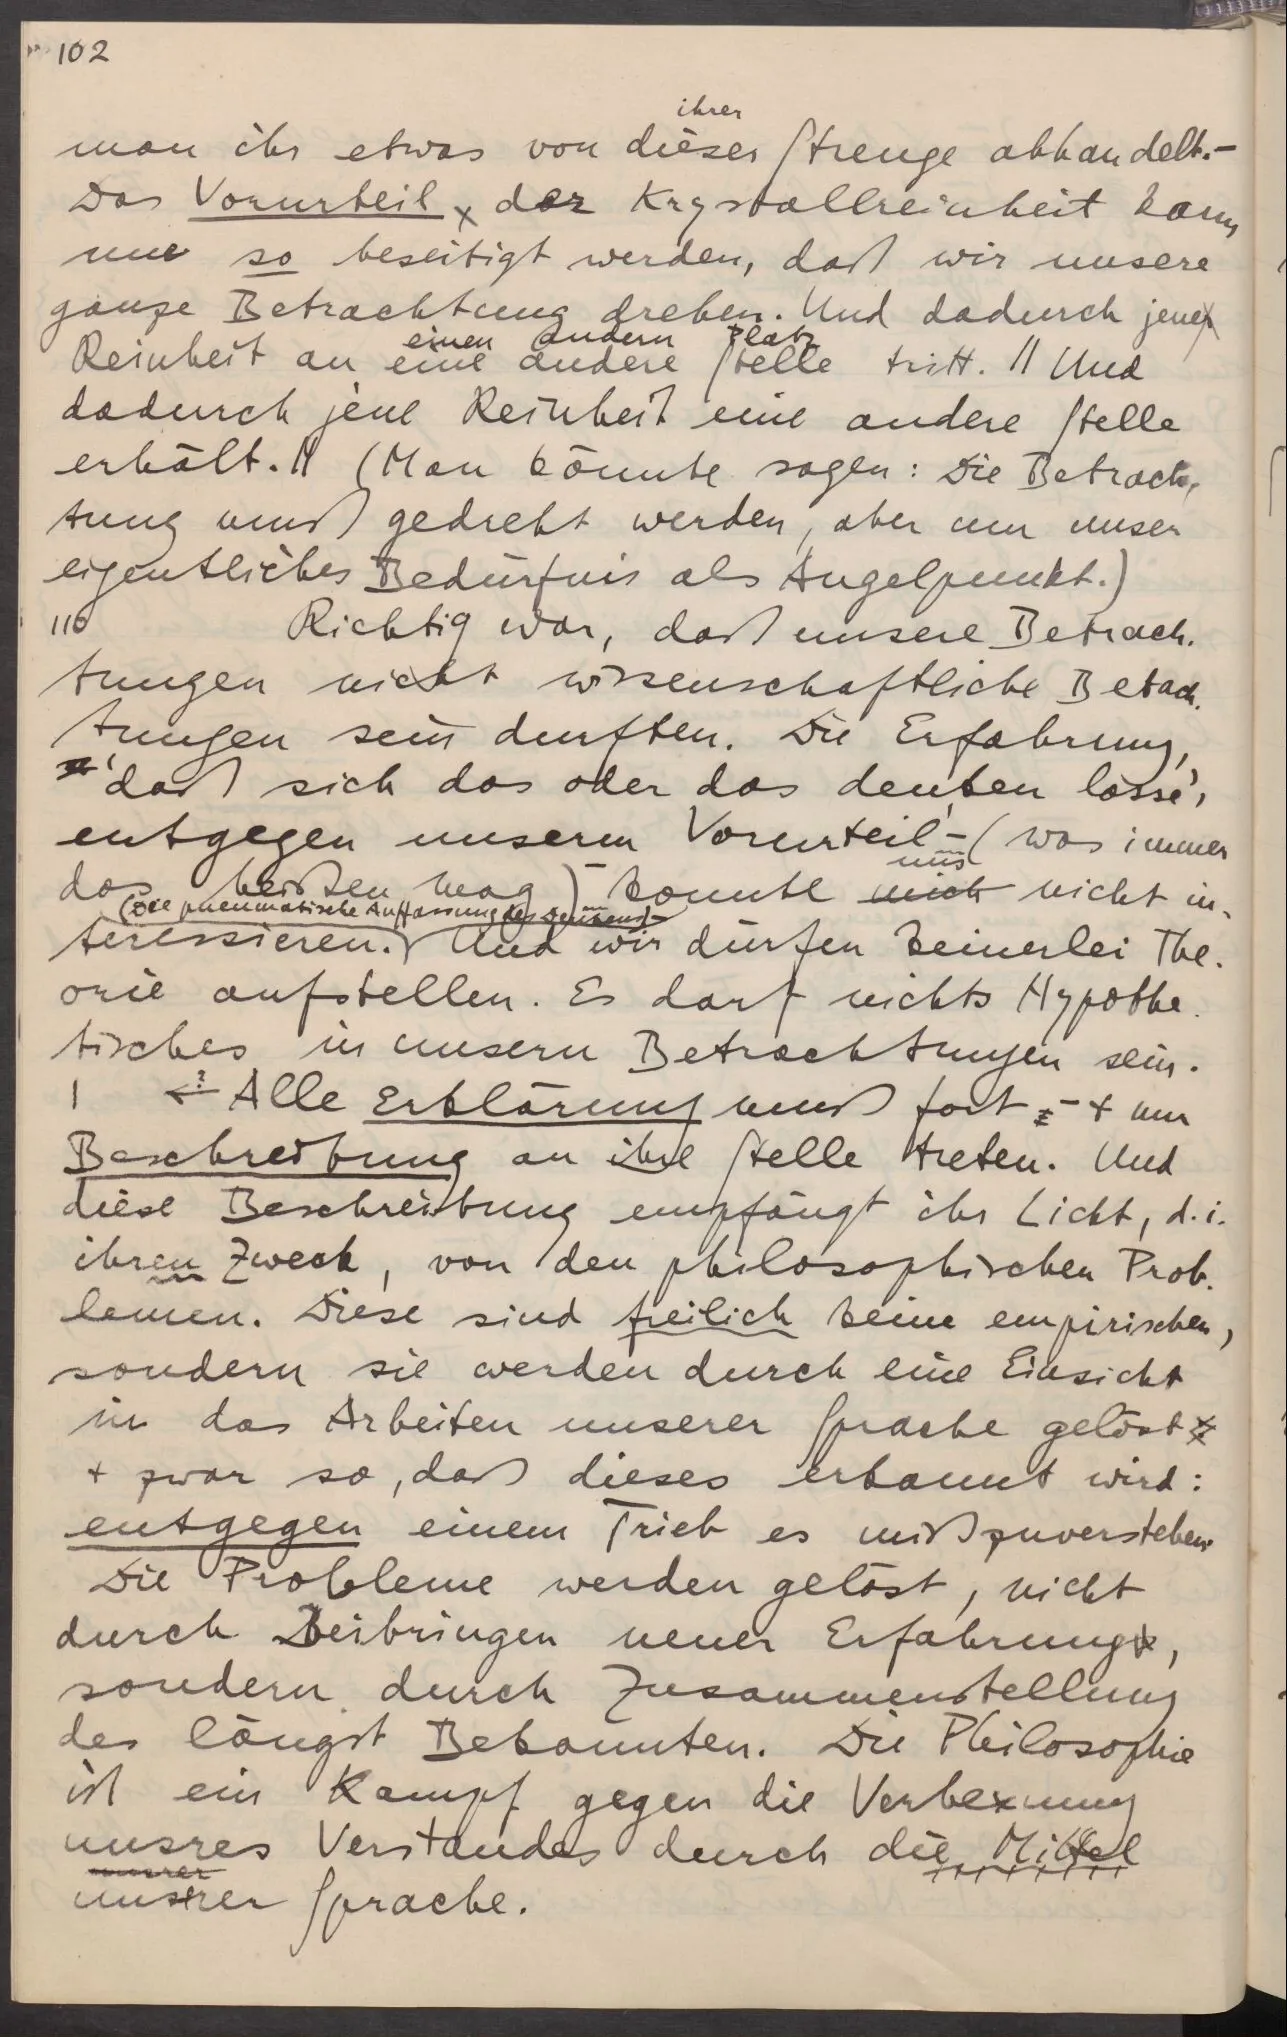 102
ihrer
man ihr etwas von dieser Strenge abhandelt. –
Das Vorurteil x der Krystallreinheit kann
nur so beseitigt werden, daß wir unsere
ganze Betrachtung drehen. Und dadurch jene
einen andern Platz
Reinheit an eine andere Stelle tritt. // Und
dadurch jene Reinheit eine andere Stelle
erhält. // (Man könnte sagen: Die Betrach-
tung muß gedreht werden, aber um unser
eigentliches Bedürfnis als Angelpunkt.)
110 Richtig war, daß unsere Betrach-
tungen nicht wissenschaftliche Betach-
tungen sein durften. Die Erfahrung,
'daß sich das oder das denken lasse',
entgegen unserm Vorurteil' – (was immer
uns
das heißen mag) – konnte mich nicht in-
(Die pneumatische Auffassung des Denkens) –
teressieren.) Und wir dürfen keinerlei The-
orie aufstellen. Es darf nichts Hypothe-
tisches in unsern Betrachtungen sein.
| ←? Alle Erklärung muß fort – + nur
Beschreibung an ihre Stelle treten. Und
diese Beschreibung empfängt ihr Licht, d.i.
ihren Zweck, von den philosophischen Prob-
lemen. Diese sind freilich keine empirischen,
sondern sie werden durch eine Einsicht
in das Arbeiten unserer Sprache gelöst
+ zwar so, daß dieses erkannt wird:
entgegen einem Trieb es mißzuverstehen.
Die Probleme werden gelöst, nicht
durch Beibringen neuer Erfahrung,
sondern durch Zusammenstellung
des längst Bekannten. Die Philosophie
ist ein Kampf gegen die Verhexung
unsres Verstandes durch die Mittel
unsrer
unserer Sprache.